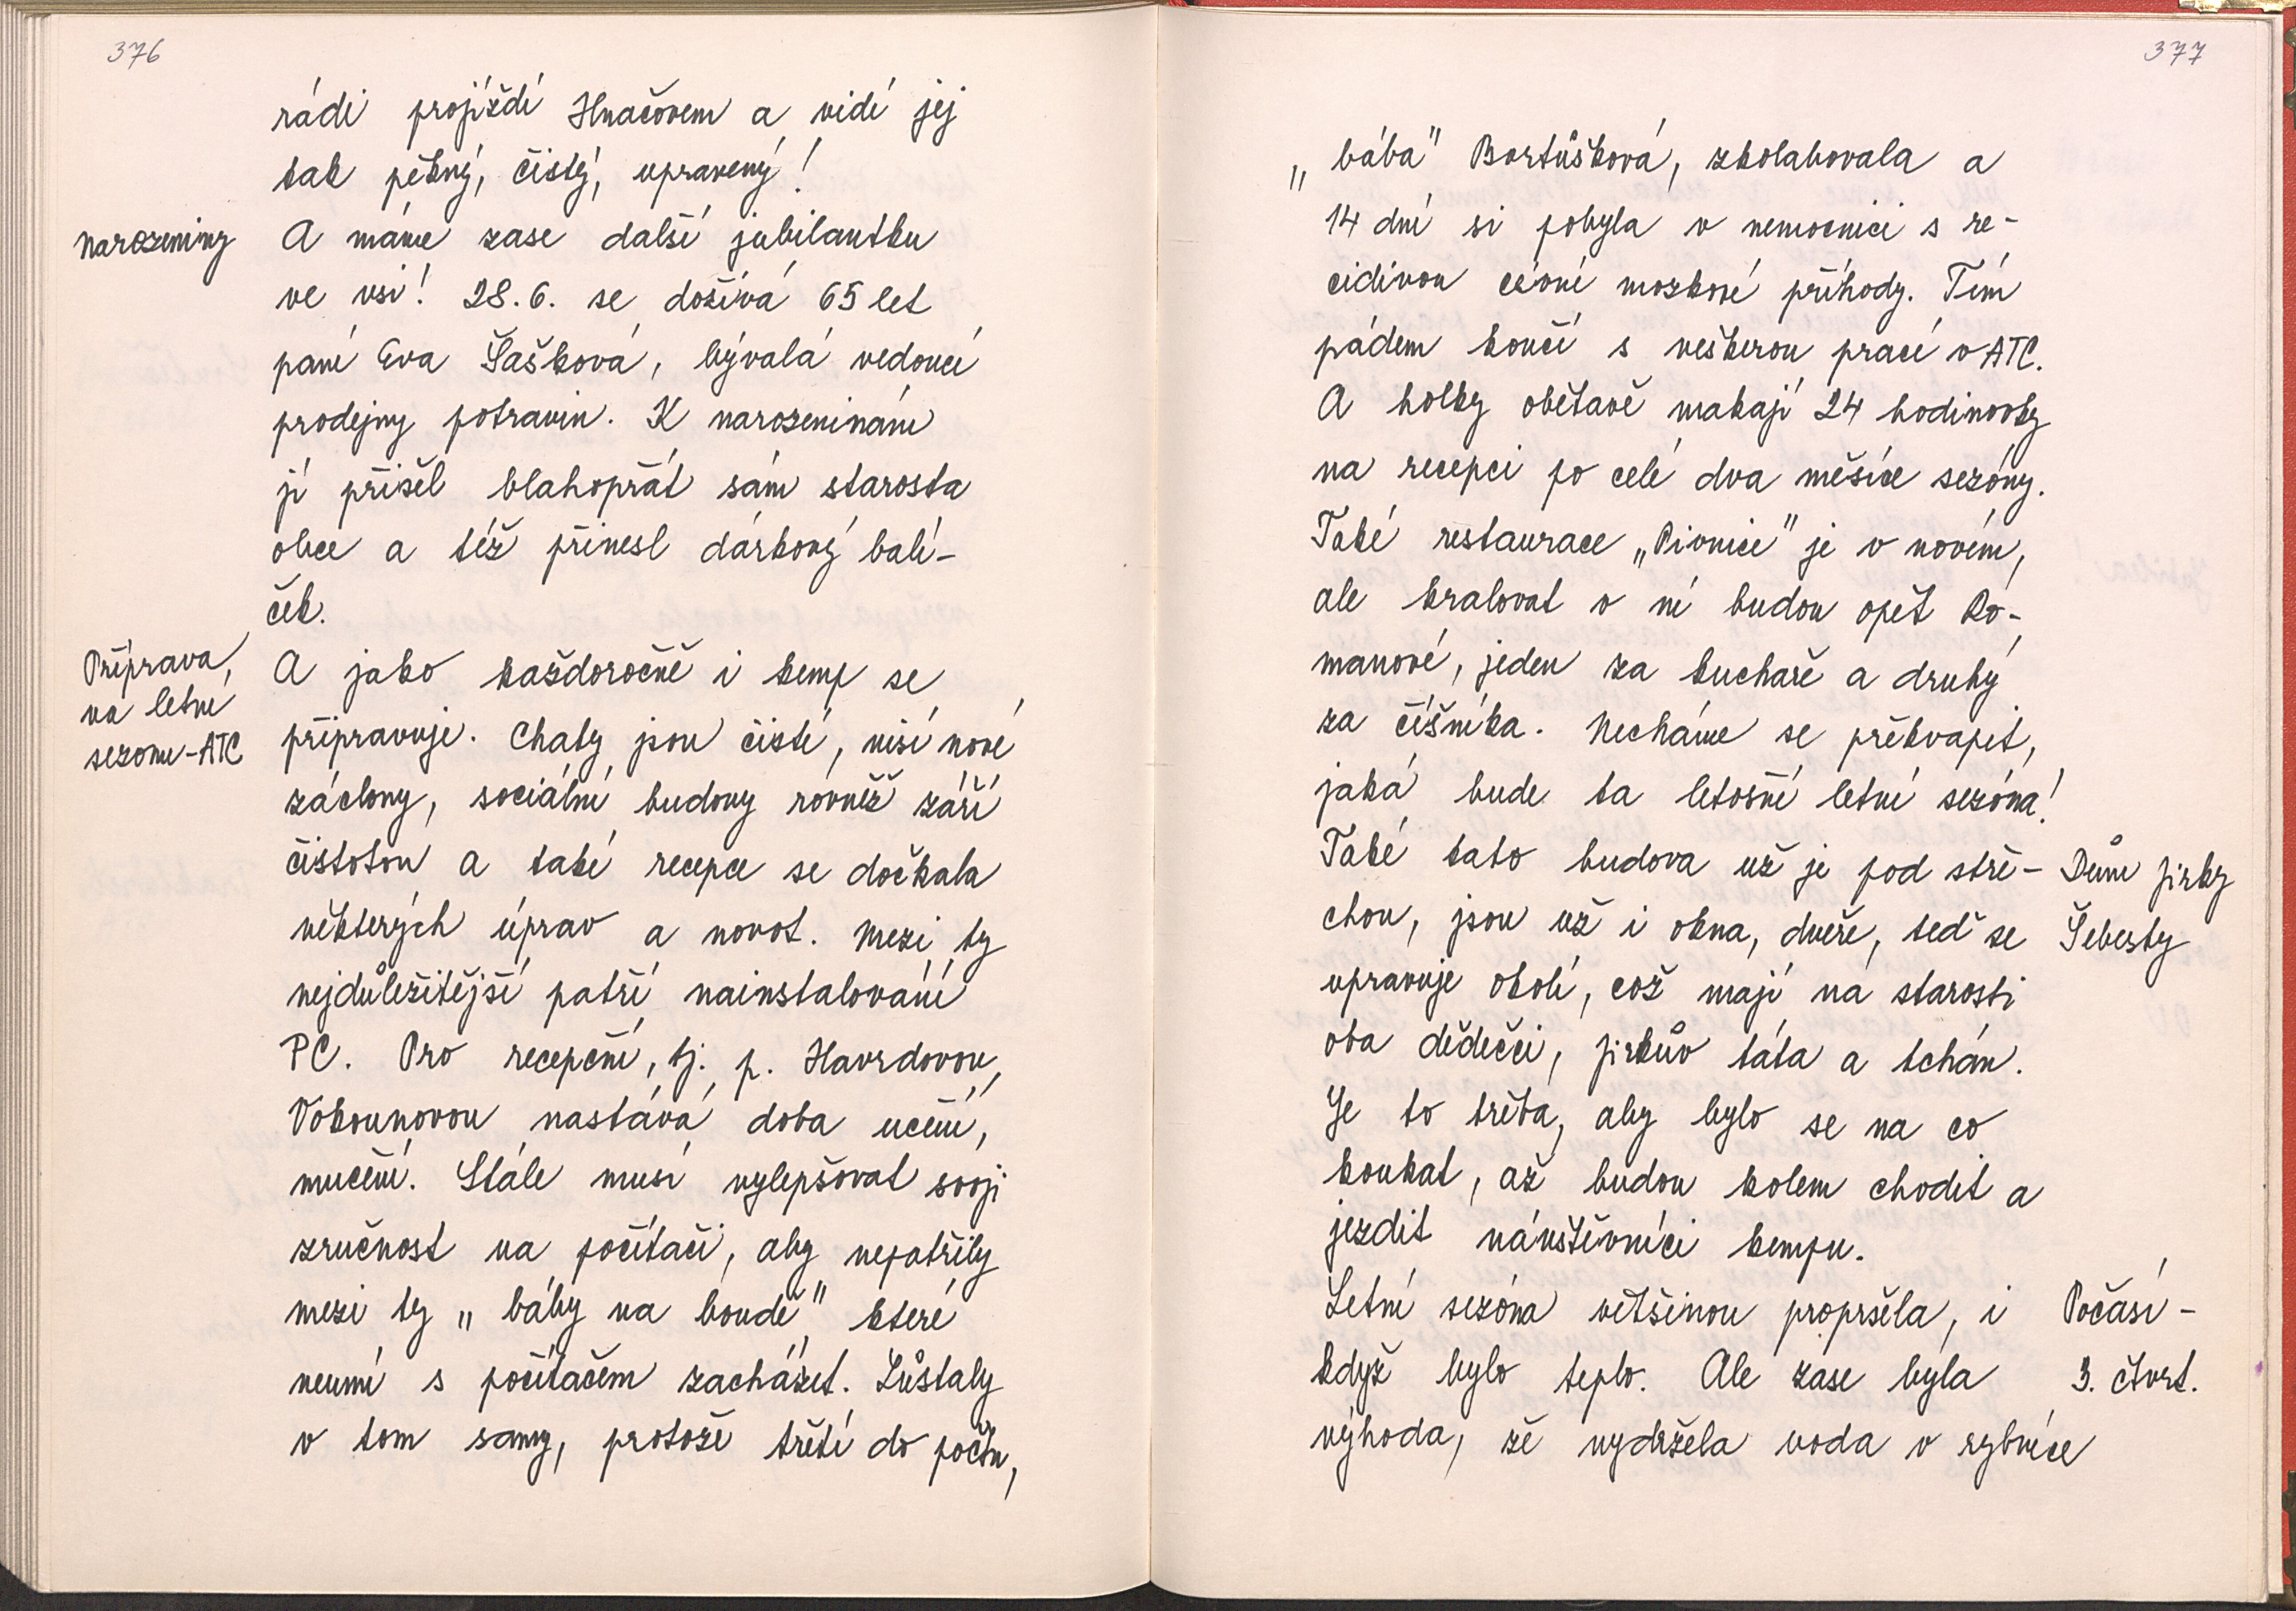 376
rádi projíždí Hnačovem a vidí jej
tak pěkný, čistý, upravený!
narozeniny
A máme zase další jubilantku
ve vsi! 28.6. se dožívá 65 let
paní Eva Šašková, bývalá vedoucí
prodejny potravin. K narozeninám
jí přišel blahopřát sám starosta
obce a též přinesl dárkový balí-
ček.
Příprava
na letní
sezonu-ATC
A jako každoročně i kemp se
připravuje. Chaty jsou čisté, visí nové
záclony, sociální budovy rovněž září
čistotou a také recepce se dočkala
některých úprav a novot. Mezi ty
nejdůležitější patří nainstalování
PC. Pro recepční, tj. p. Havrdovou,
Vokounovou nastává doba učení,
mučení. Stále musí vylepšovat svoji
zručnost na počítači, aby nepatřily
mezi ty „báby na boudě" které
neumí s počítačem zacházet. Zůstaly
v tom samy, protože třetí do počtu,
377
„bába" Bortůšková, zkolabovala a
14 dní si pobyla v nemocnici s re-
cidivou cévní mozkové příhody. Tím
pádem končí s veškerou prací v ATC.
A holky obětavě makají 24 hodinovky
na recepci po celé dva měsíce sezóny.
Také restaurace „Pivnice" je v novém,
ale kralovat v ní budou opět Ro-
manové, jeden za kuchaře a druhý
za číšníka. Necháme se překvapit,
jaká bude ta letošní letní sezóna!
Také tato budova už je pod stře-
chou, jsou už i okna, dveře, teď se
upravuje okolí, což mají na starosti
oba dědečci, Jirkův táta a tchán.
Je to třeba, aby bylo se na co
koukat, až budou kolem chodit a
jezdit návštěvníci kempu.
Dům Jirky
Šebesty
Letní sezóna většinou propršela, i
když bylo teplo. Ale zase byla
výhoda, že vydržela voda v rybníce
Počasí -
3. čtvrt.